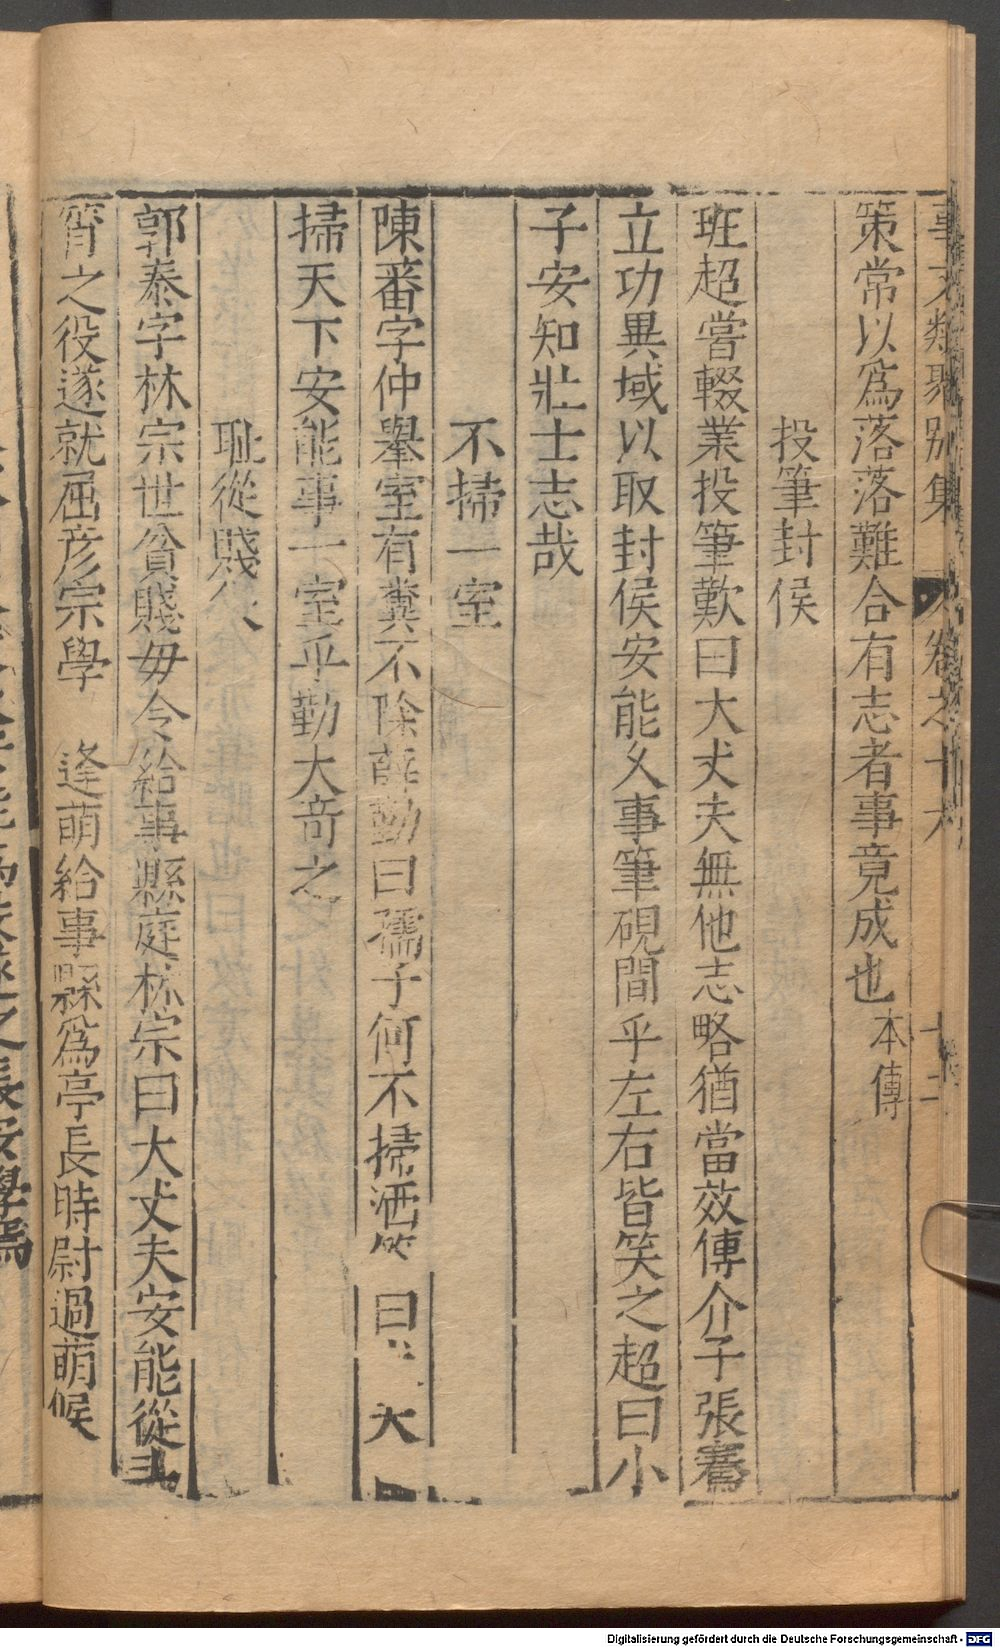 事文類聚別集 卷之十六 十二
策常以爲落落難合有志者事竟成也本傳
投筆封侯
班超嘗輟業投筆歎曰大丈夫無他志略猶當效傅介子張騫
立功異域以取封侯安能久事筆硯間乎左右皆笑之超曰小
子安知壯士志哉
不掃一室
陳蕃字仲舉室有糞不除薛勤曰孺子何不掃洒 曰 大
掃天下安能事一室乎勤大奇之
耻從賤
郭泰字林宗世貧賤毋令給事縣庭林宗曰大丈夫安能從斗
筲之役遂就屈彥宗學 逢萌給事縣爲亭長時尉過萌候
之長安學焉
Digitalisierung gefördert durch die Deutsche Forschungsgemeinschaft - DFG